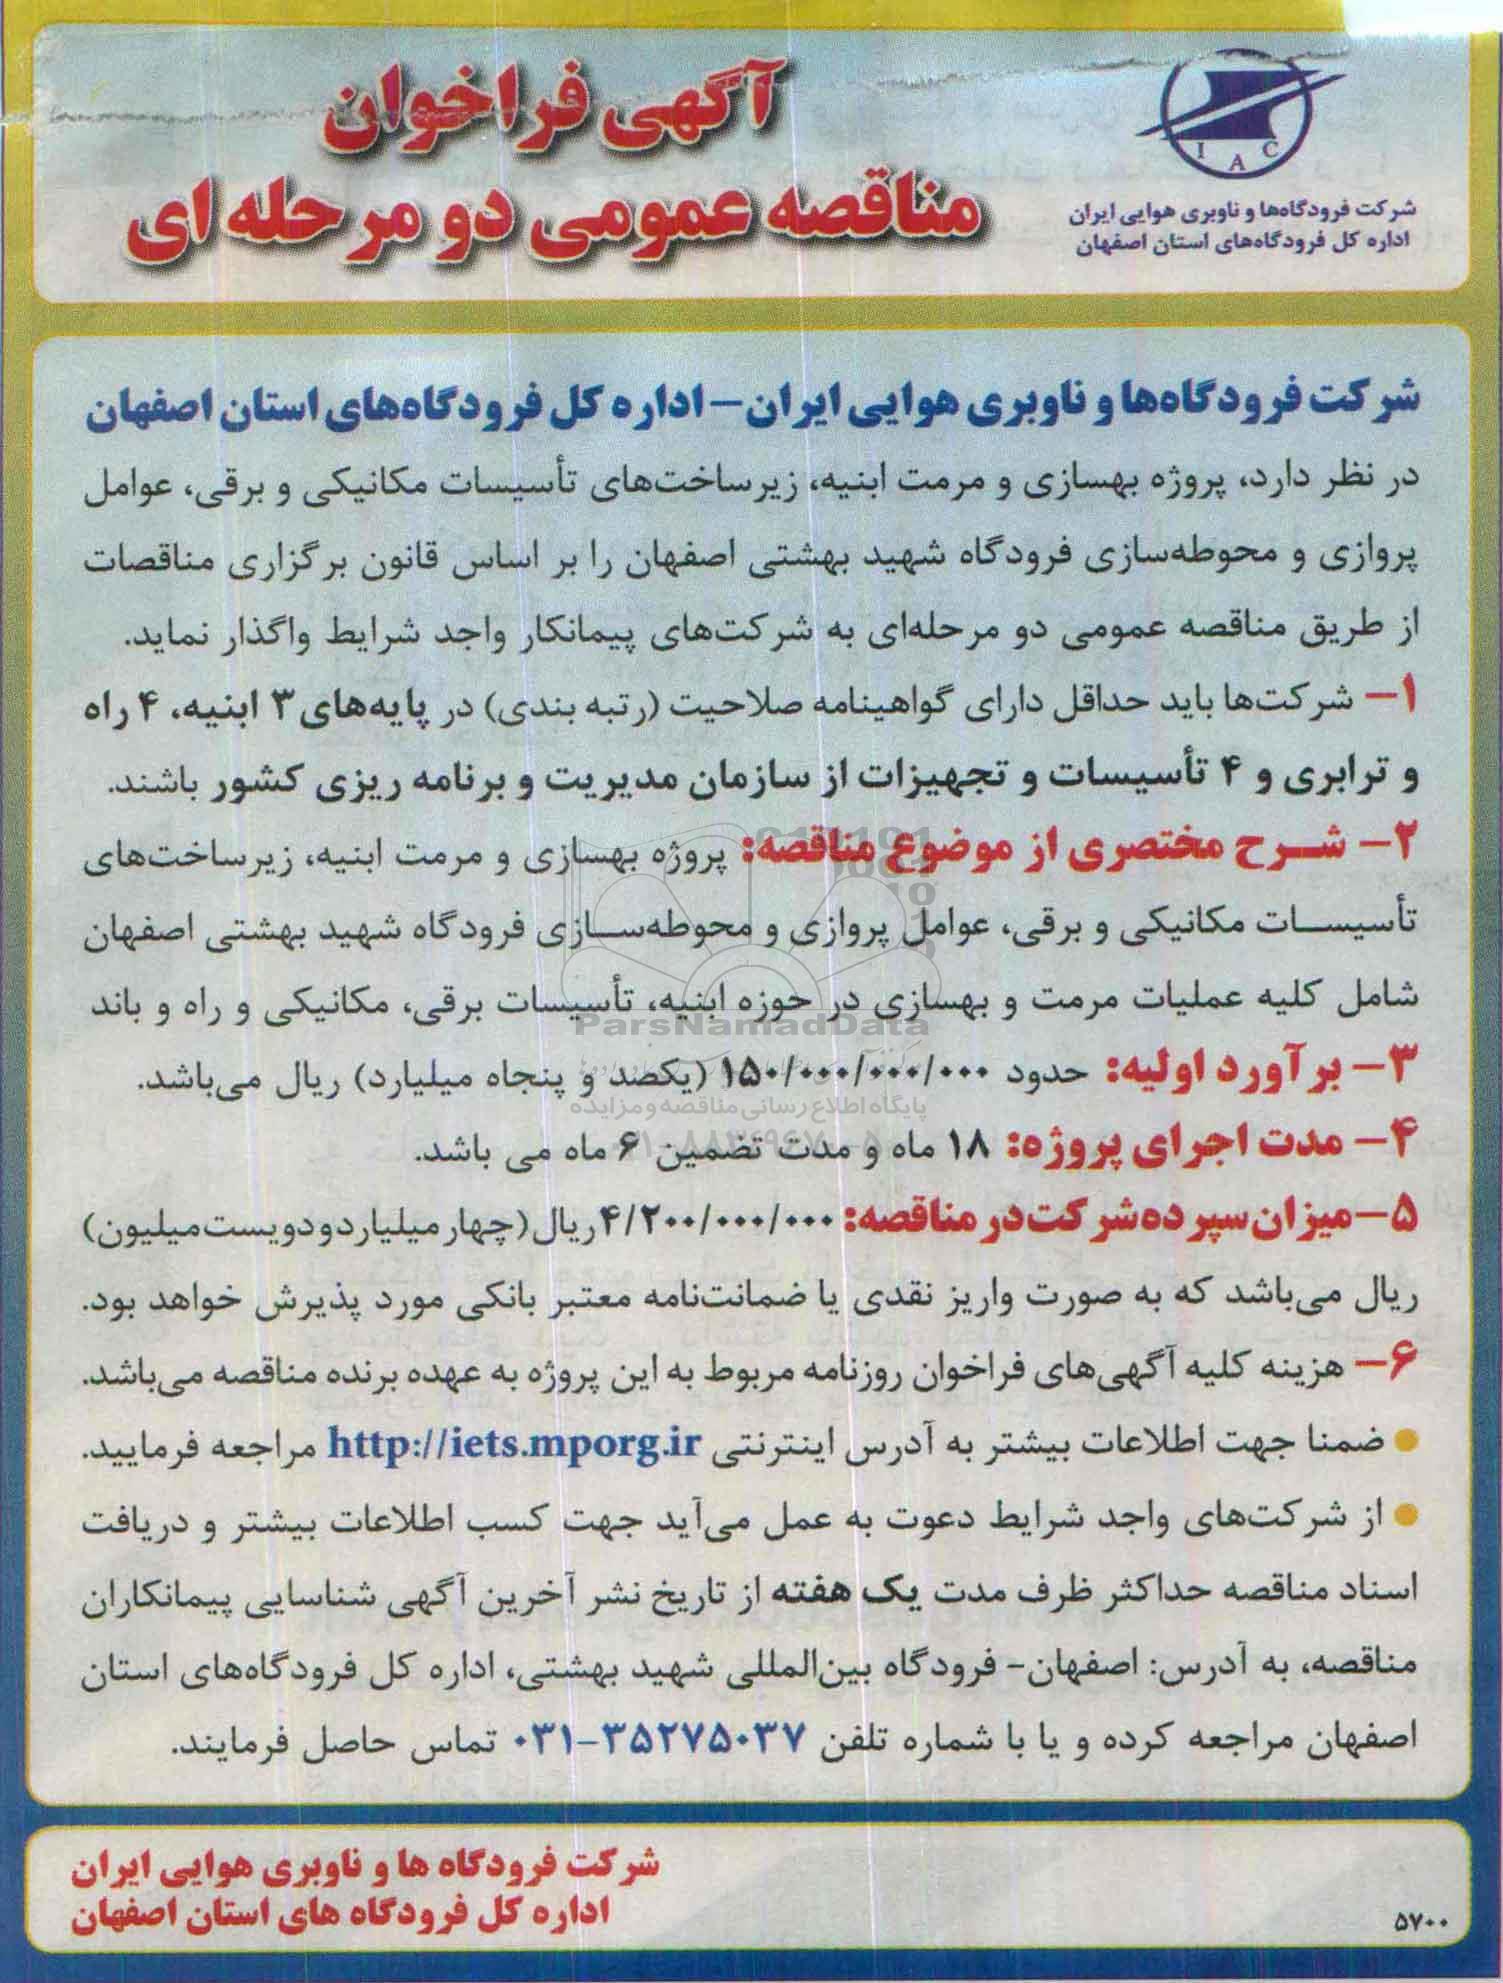 آگهی فراخوان
مناقصه عمومی دو مرحله ای
IAC
شرکت فرودگاه‌ها و ناوبری هوایی ایران
اداره کل فرودگاه‌های استان اصفهان
شرکت فرودگاه‌ها و ناوبری هوایی ایران – اداره کل فرودگاه‌های استان اصفهان
در نظر دارد، پروژه بهسازی و مرمت ابنیه، زیرساخت‌های تأسیسات مکانیکی و برقی، عوامل
پروازی و محوطه‌سازی فرودگاه شهید بهشتی اصفهان را بر اساس قانون برگزاری مناقصات
از طریق مناقصه عمومی دو مرحله‌ای به شرکت‌های پیمانکار واجد شرایط واگذار نماید.
۱– شرکت‌ها باید حداقل دارای گواهینامه صلاحیت (رتبه بندی) در پایه‌های ۳ ابنیه، ۴ راه
و ترابری و ۴ تأسیسات و تجهیزات از سازمان مدیریت و برنامه ریزی کشور باشند.
۲– شرح مختصری از موضوع مناقصه: پروژه بهسازی و مرمت ابنیه، زیرساخت‌های
تأسیسات مکانیکی و برقی، عوامل پروازی و محوطه‌سازی فرودگاه شهید بهشتی اصفهان
شامل کلیه عملیات مرمت و بهسازی در حوزه ابنیه، تأسیسات برقی، مکانیکی و راه و باند
ParsNamadData
۳– برآورد اولیه: حدود ۱۵۰/۰۰۰/۰۰۰/۰۰۰ (یکصد و پنجاه میلیارد) ریال می‌باشد.
پایگاه اطلاع رسانی مناقصه و مزایده
۴– مدت اجرای پروژه: ۱۸ ماه و مدت تضمین ۶ ماه می باشد.
۵–میزان سپرده شرکت در مناقصه: ۴/۲۰۰/۰۰۰/۰۰۰ ریال (چهار میلیارد و دویست میلیون)
ریال می‌باشد که به صورت واریز نقدی یا ضمانت‌نامه معتبر بانکی مورد پذیرش خواهد بود.
۶– هزینه کلیه آگهی‌های فراخوان روزنامه مربوط به این پروژه به عهده برنده مناقصه می‌باشد.
● ضمنا جهت اطلاعات بیشتر به آدرس اینترنتی http://iets.mporg.ir مراجعه فرمایید.
● از شرکت‌های واجد شرایط دعوت به عمل می‌آید جهت کسب اطلاعات بیشتر و دریافت
اسناد مناقصه حداکثر ظرف مدت یک هفته از تاریخ نشر آخرین آگهی شناسایی پیمانکاران
مناقصه، به آدرس: اصفهان- فرودگاه بین‌المللی شهید بهشتی، اداره کل فرودگاه‌های استان
اصفهان مراجعه کرده و یا با شماره تلفن ۰۳۱-۳۵۲۷۵۰۳۷ تماس حاصل فرمایند.
شرکت فرودگاه ها و ناوبری هوایی ایران
اداره کل فرودگاه های استان اصفهان
۵۷۰۰